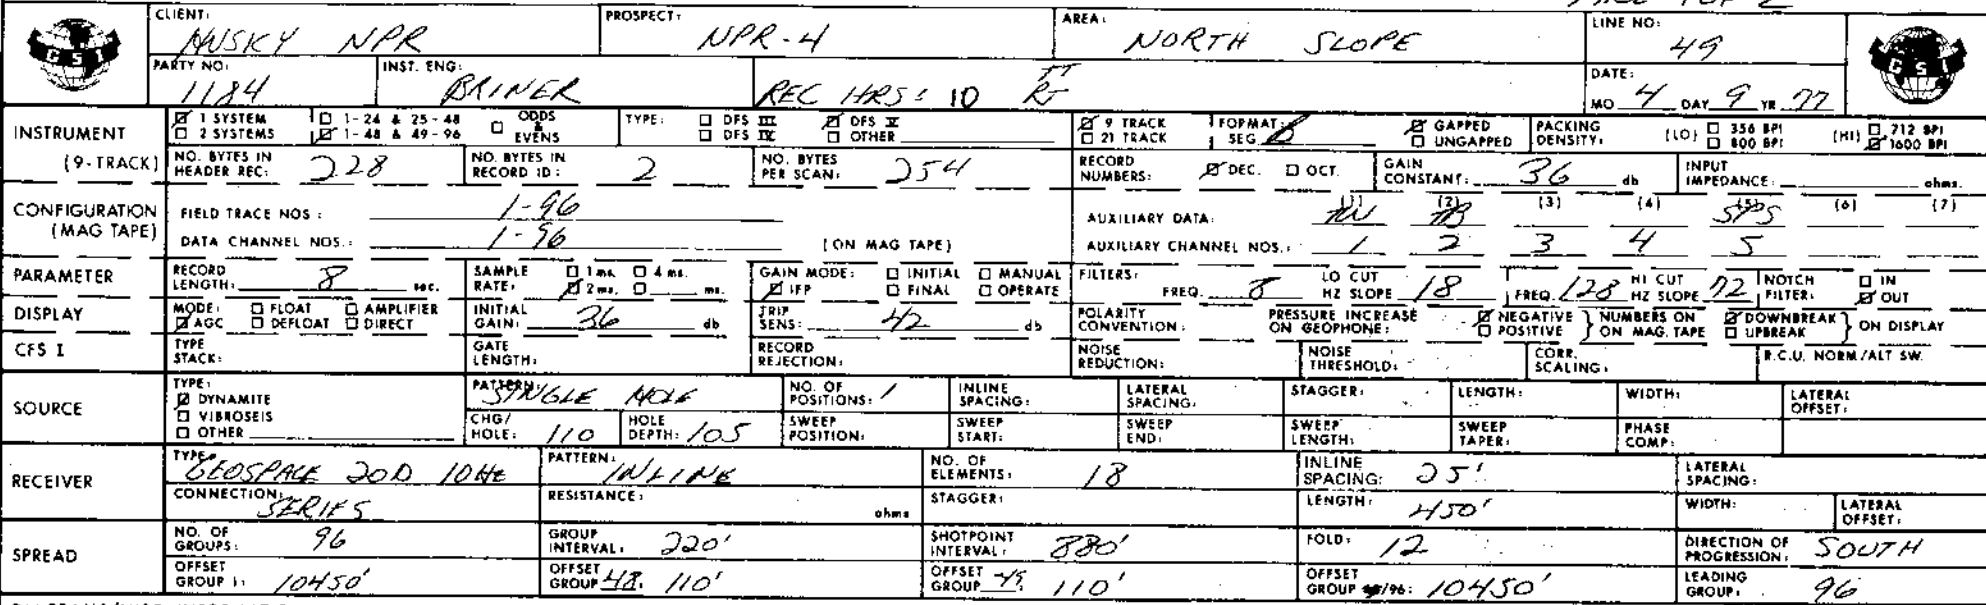 CLIENT: HUSKY NPR PROSPECT: NPR-4 AREA: NORTH SLOPE LINE NO: 49
PARTY NO: 1184 INST. ENG: BRINER REC HRS: 10 DATE: MO 4 DAY 9 YR 77
GSI GSI
INSTRUMENT ☑ 1 SYSTEM ☐ 1-24 & 25-48 ☐ ODDS & EVENS TYPE: ☐ DFS III ☑ DFS V ☑ 9 TRACK FORMAT: ☑ GAPPED PACKING DENSITY: (LO) ☐ 356 BPI (HI) ☐ 712 BPI
☐ 2 SYSTEMS ☑ 1-48 & 49-96 ☐ DFS IV ☐ OTHER ☐ 21 TRACK SEG B ☐ UNGAPPED ☐ 800 BPI ☑ 1600 BPI
(9-TRACK) NO. BYTES IN HEADER REC: 228 NO. BYTES IN RECORD ID: 2 NO. BYTES PER SCAN: 254 RECORD NUMBERS: ☑ DEC. ☐ OCT. GAIN CONSTANT: 36 db INPUT IMPEDANCE: ohms.
CONFIGURATION (MAG TAPE) FIELD TRACE NOS: 1-96 AUXILIARY DATA: (1) (2) TB (3) (4) (5) SPS (6) (7)
DATA CHANNEL NOS.: 1-96 (ON MAG TAPE) AUXILIARY CHANNEL NOS.: 1 2 3 4 5
PARAMETER RECORD LENGTH: 8 sec. SAMPLE RATE: ☐ 1 ms. ☐ 4 ms. ☑ 2 ms. ☐ ms. GAIN MODE: ☐ INITIAL ☐ MANUAL ☑ IFP ☐ FINAL ☐ OPERATE FILTERS: LO CUT FREQ. 8 HZ SLOPE 18 HI CUT FREQ. 128 HZ SLOPE 72 NOTCH FILTER: ☐ IN ☑ OUT
DISPLAY MODE: ☐ FLOAT ☐ AMPLIFIER ☑ AGC ☐ DEFLOAT ☐ DIRECT INITIAL GAIN: 36 db TRIP SENS: 42 db POLARITY CONVENTION: PRESSURE INCREASE ON GEOPHONE: ☑ NEGATIVE ☐ POSITIVE } NUMBERS ON ON MAG. TAPE ☑ DOWNBREAK ☐ UPBREAK } ON DISPLAY
CFS I TYPE STACK: GATE LENGTH: RECORD REJECTION: NOISE REDUCTION: NOISE THRESHOLD: CORR. SCALING: R.C.U. NORM/ALT SW.
SOURCE TYPE: ☑ DYNAMITE ☐ VIBROSEIS ☐ OTHER PATTERN: SINGLE HOLE NO. OF POSITIONS: 1 INLINE SPACING: LATERAL SPACING: STAGGER: LENGTH: WIDTH: LATERAL OFFSET:
CHG/HOLE: 110 HOLE DEPTH: 105 SWEEP POSITION: SWEEP START: SWEEP END: SWEEP LENGTH: SWEEP TAPER: PHASE COMP:
RECEIVER TYPE: GEOSPACE 20D 10HZ PATTERN: INLINE NO. OF ELEMENTS: 18 INLINE SPACING: 25' LATERAL SPACING:
CONNECTION: SERIES RESISTANCE: ohms STAGGER: LENGTH: 450' WIDTH: LATERAL OFFSET:
SPREAD NO. OF GROUPS: 96 GROUP INTERVAL: 220' SHOTPOINT INTERVAL: 880' FOLD: 12 DIRECTION OF PROGRESSION: SOUTH
OFFSET GROUP 1: 10450' OFFSET GROUP 48: 110' OFFSET GROUP 49: 110' OFFSET GROUP /96: 10450' LEADING GROUP: 96